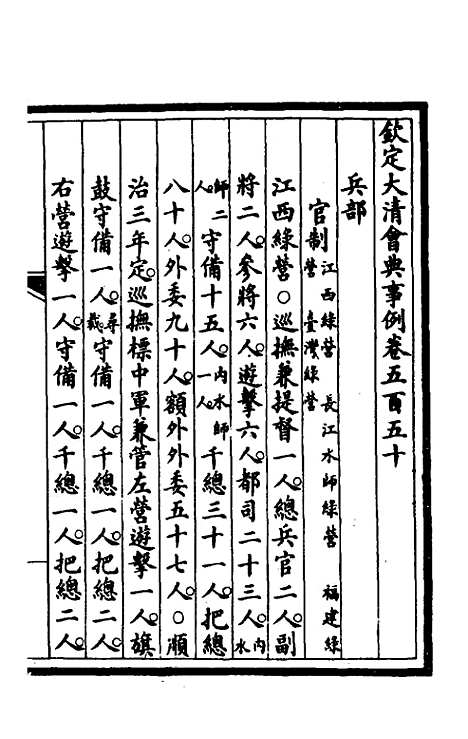 欽定大清會典事例卷五百五十
兵部
官制江西綠營 長江水師綠營 福建綠營 臺灣綠營
江西綠營○巡撫兼提督一人總兵官二人副
將二人參將六人遊擊六人都司二十三人內水
師二人守備十五人內水師一人千總三十一人把總
八十人外委九十人額外外委五十七人○順
治三年定巡撫標中軍兼管左營遊擊一人旗
鼓守備一人尋裁守備一人千總一人把總二人
右營遊擊一人守備一人千總一人把總二人